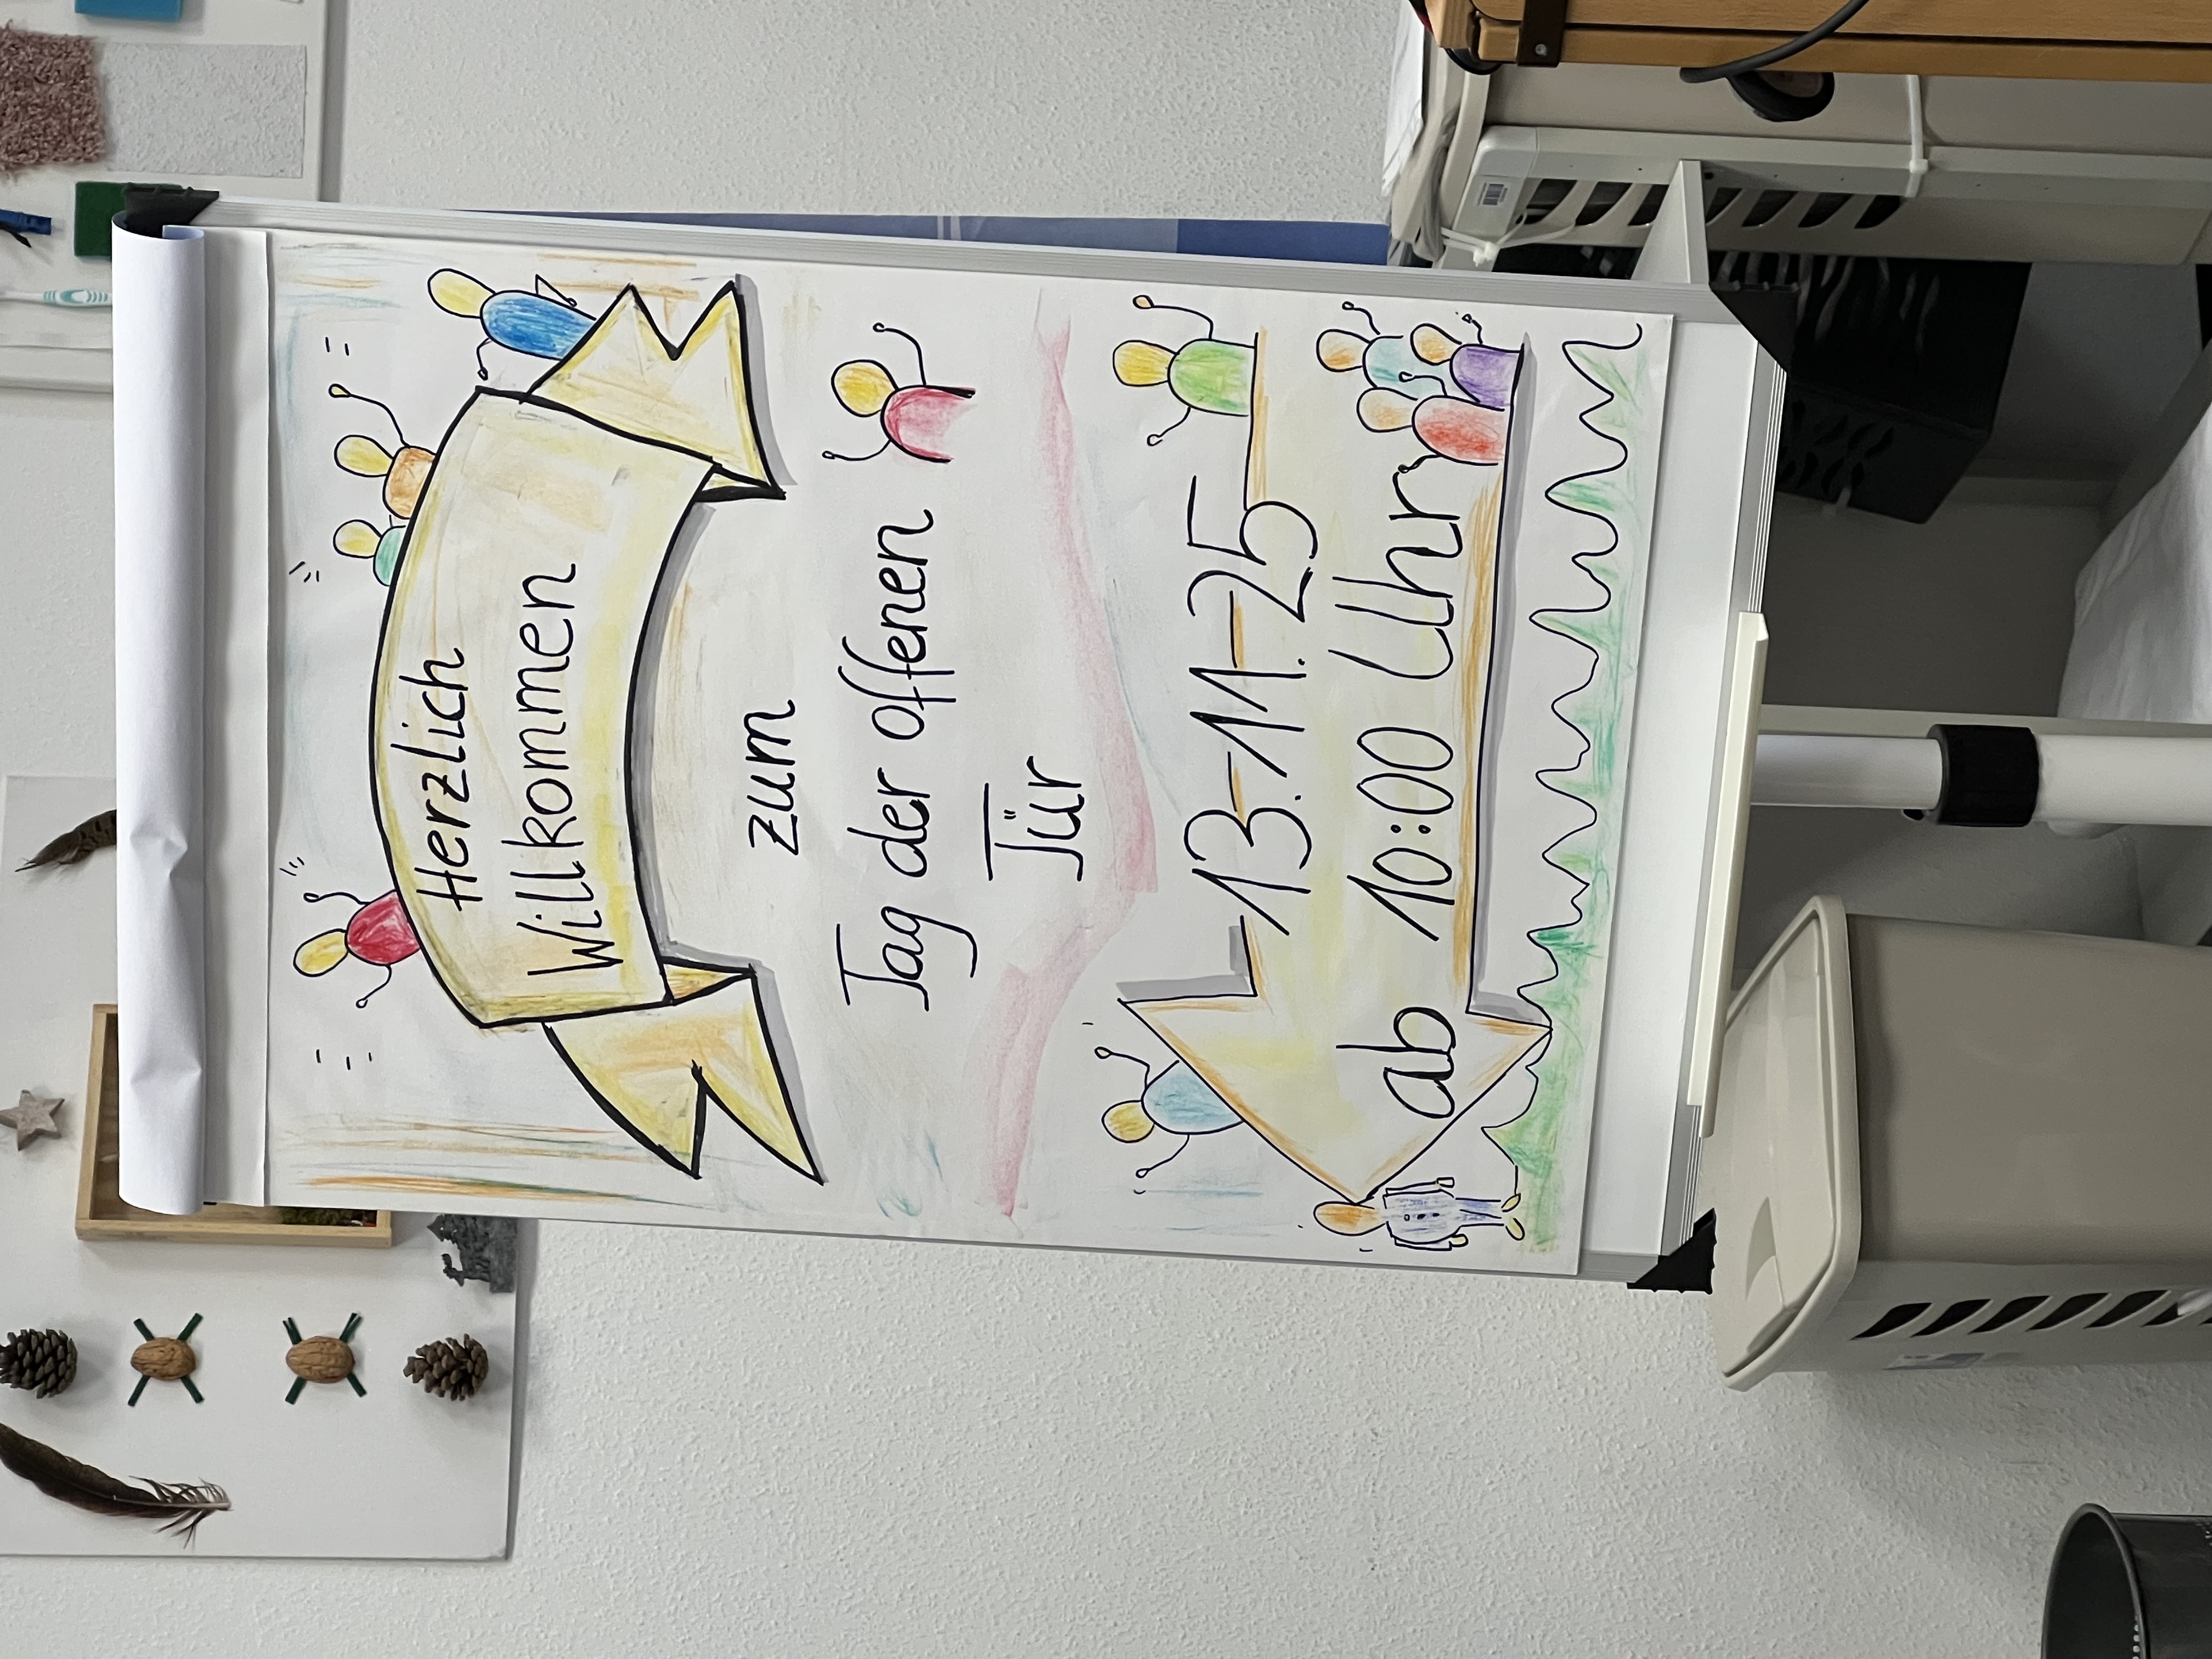 Herzlich
Willkommen
zum
Tag der offenen
Tür
13.11.25
ab 10:00 Uhr